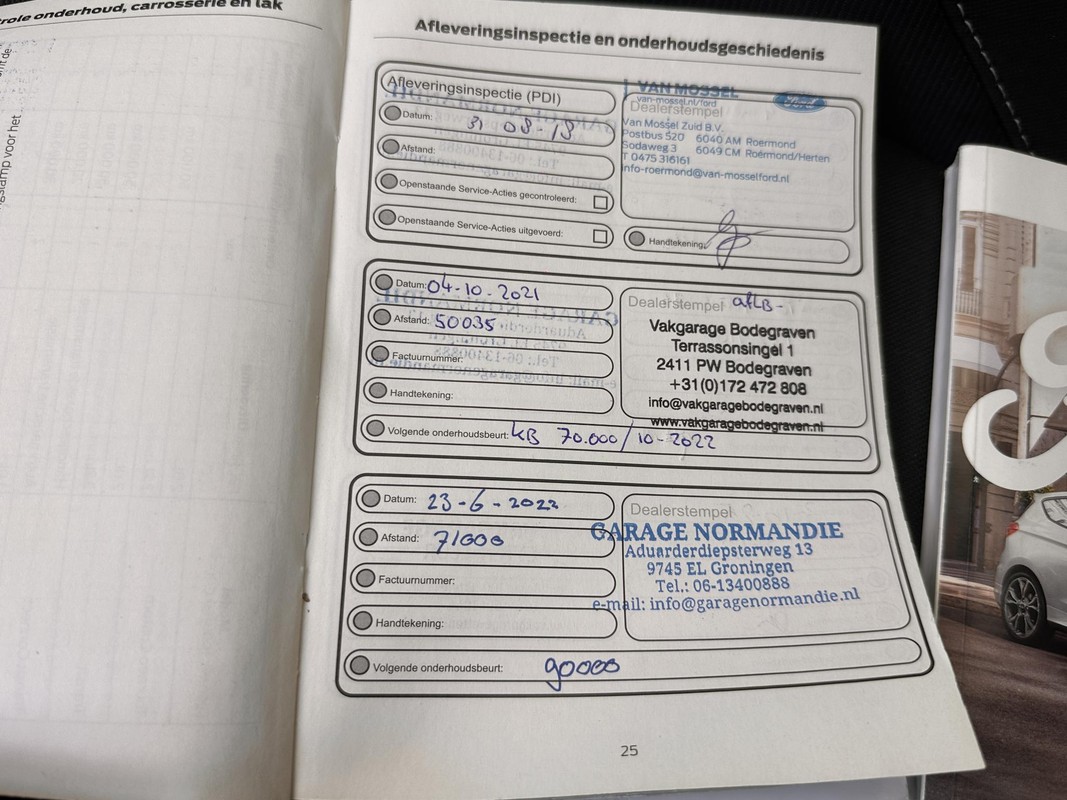 role onderhoud, carrosserie en lak
gslamp voor het
Afleveringsinspectie en onderhoudsgeschiedenis
Afleveringsinspectie (PDI)
Datum: 31 08-18
Afstand:
Openstaande Service-Acties gecontroleerd:
Openstaande Service-Acties uitgevoerd:
VAN MOSSEL
van-mossel.nl/ford
Ford
Dealerstempel
Van Mossel Zuid B.V.
Postbus 520 6040 AM Roermond
Sodaweg 3 6049 CM Roermond/Herten
T 0475 316161
info-roermond@van-mosselford.nl
Handtekening:
Datum: 04-10-2021
Afstand: 50035
Factuurnummer:
Handtekening:
Dealerstempel
Vakgarage Bodegraven
Terrassonsingel 1
2411 PW Bodegraven
+31(0)172 472 808
info@vakgaragebodegraven.nl
www.vakgaragebodegraven.nl
Volgende onderhoudsbeurt: KB 70.000/10-2022
Datum: 23-6-2022
Afstand: 71000
Factuurnummer:
Handtekening:
Dealerstempel
GARAGE NORMANDIE
Aduarderdiepsterweg 13
9745 EL Groningen
Tel.: 06-13400888
e-mail: info@garagenormandie.nl
Volgende onderhoudsbeurt: 90000
25